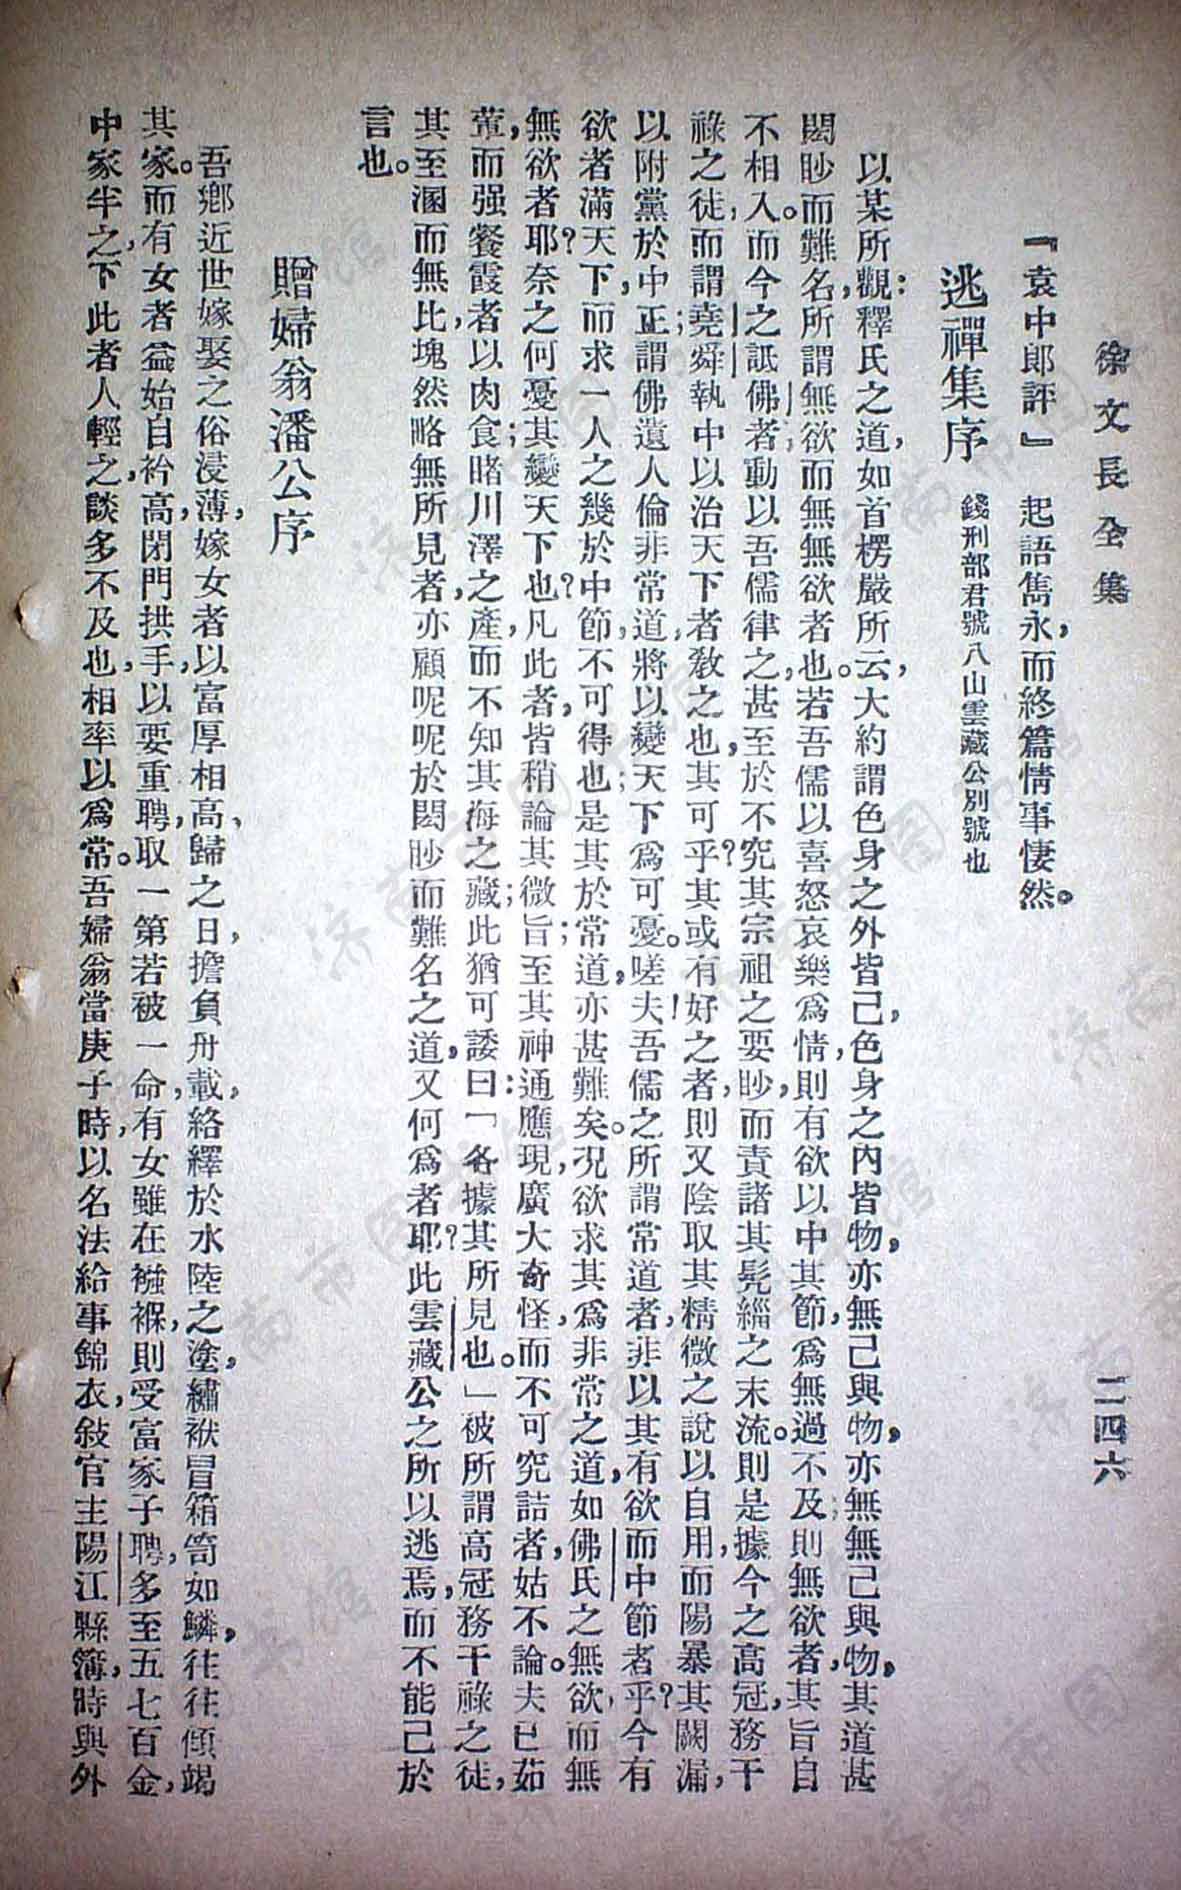 徐文長全集　二四六
『袁中郎評』　起語雋永，而終篇情事悽然。
逃禪集序　錢刑部君號八山雲藏公別號也
以某所觀，釋氏之道，如首楞嚴所云，大約謂色身之外皆己，色身之內皆物，亦無己與物，亦無無己與物，其道甚
閎眇而難名，所謂無欲而無無欲者也。若吾儒以喜怒哀樂爲情，則有欲以中其節，爲無過不及，則無欲者，其旨自
不相入。而今之詆佛者，動以吾儒律之，甚至於不究其宗祖之要眇，而責諸其髡緇之末流。則是據今之高冠務干
祿之徒，而謂堯舜執中以治天下者教之也，其可乎？其或有好之者，則又陰取其精微之說以自用，而陽暴其闕漏，
以附黨於中正，謂佛遺人倫，非常道，將以變天下爲可憂。嗟夫！吾儒之所謂常道者，非以其有欲而中節者乎？今有
欲者滿天下，而求一人之幾於中節，不可得也，是其於常道亦甚難矣。況欲求其爲非常之道，如佛氏之無欲而無
無欲者耶？奈之何憂其變天下也？凡此者，皆稍論其微旨；至其神通應現，廣大奇怪，而不可究詰者，姑不論。夫已茹
葷，而强餐霞者以肉食；睹川澤之產，而不知其海之藏，此猶可諉曰：「各據其所見也。」被所謂高冠務干祿之徒，
其至溷而無比，塊然略無所見者，亦顧呢呢於閎眇而難名之道，又何爲者耶？此雲藏公之所以逃焉，而不能已於
言也。
贈婦翁潘公序
吾鄉近世嫁娶之俗浸薄，嫁女者以富厚相高，歸之日，擔負舟載，絡繹於水陸之塗，繡袱冒箱笥如鱗，往往傾竭
其家。而有女者，益始自衿高，閉門拱手，以要重聘，取一第若被一命，有女雖在襁褓，則受富家子聘，多至五七百金，
中家半之，下此者人輕之，談多不及也，相率以爲常。吾婦翁當庚子時，以名法給事錦衣，敍官主陽江縣簿，時與外